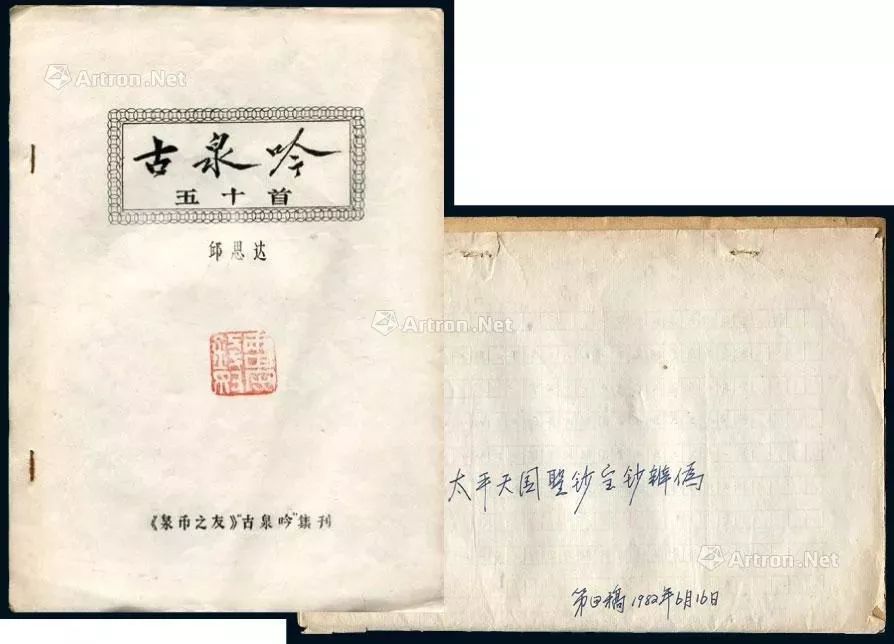 Artron.Net
古泉吟
五十首
邱思达
Artron.Net
《泉币之友》“古泉吟”集刊
太平天国圣钞宝钞辨伪
第四稿 1982年6月16日
Artron.Net